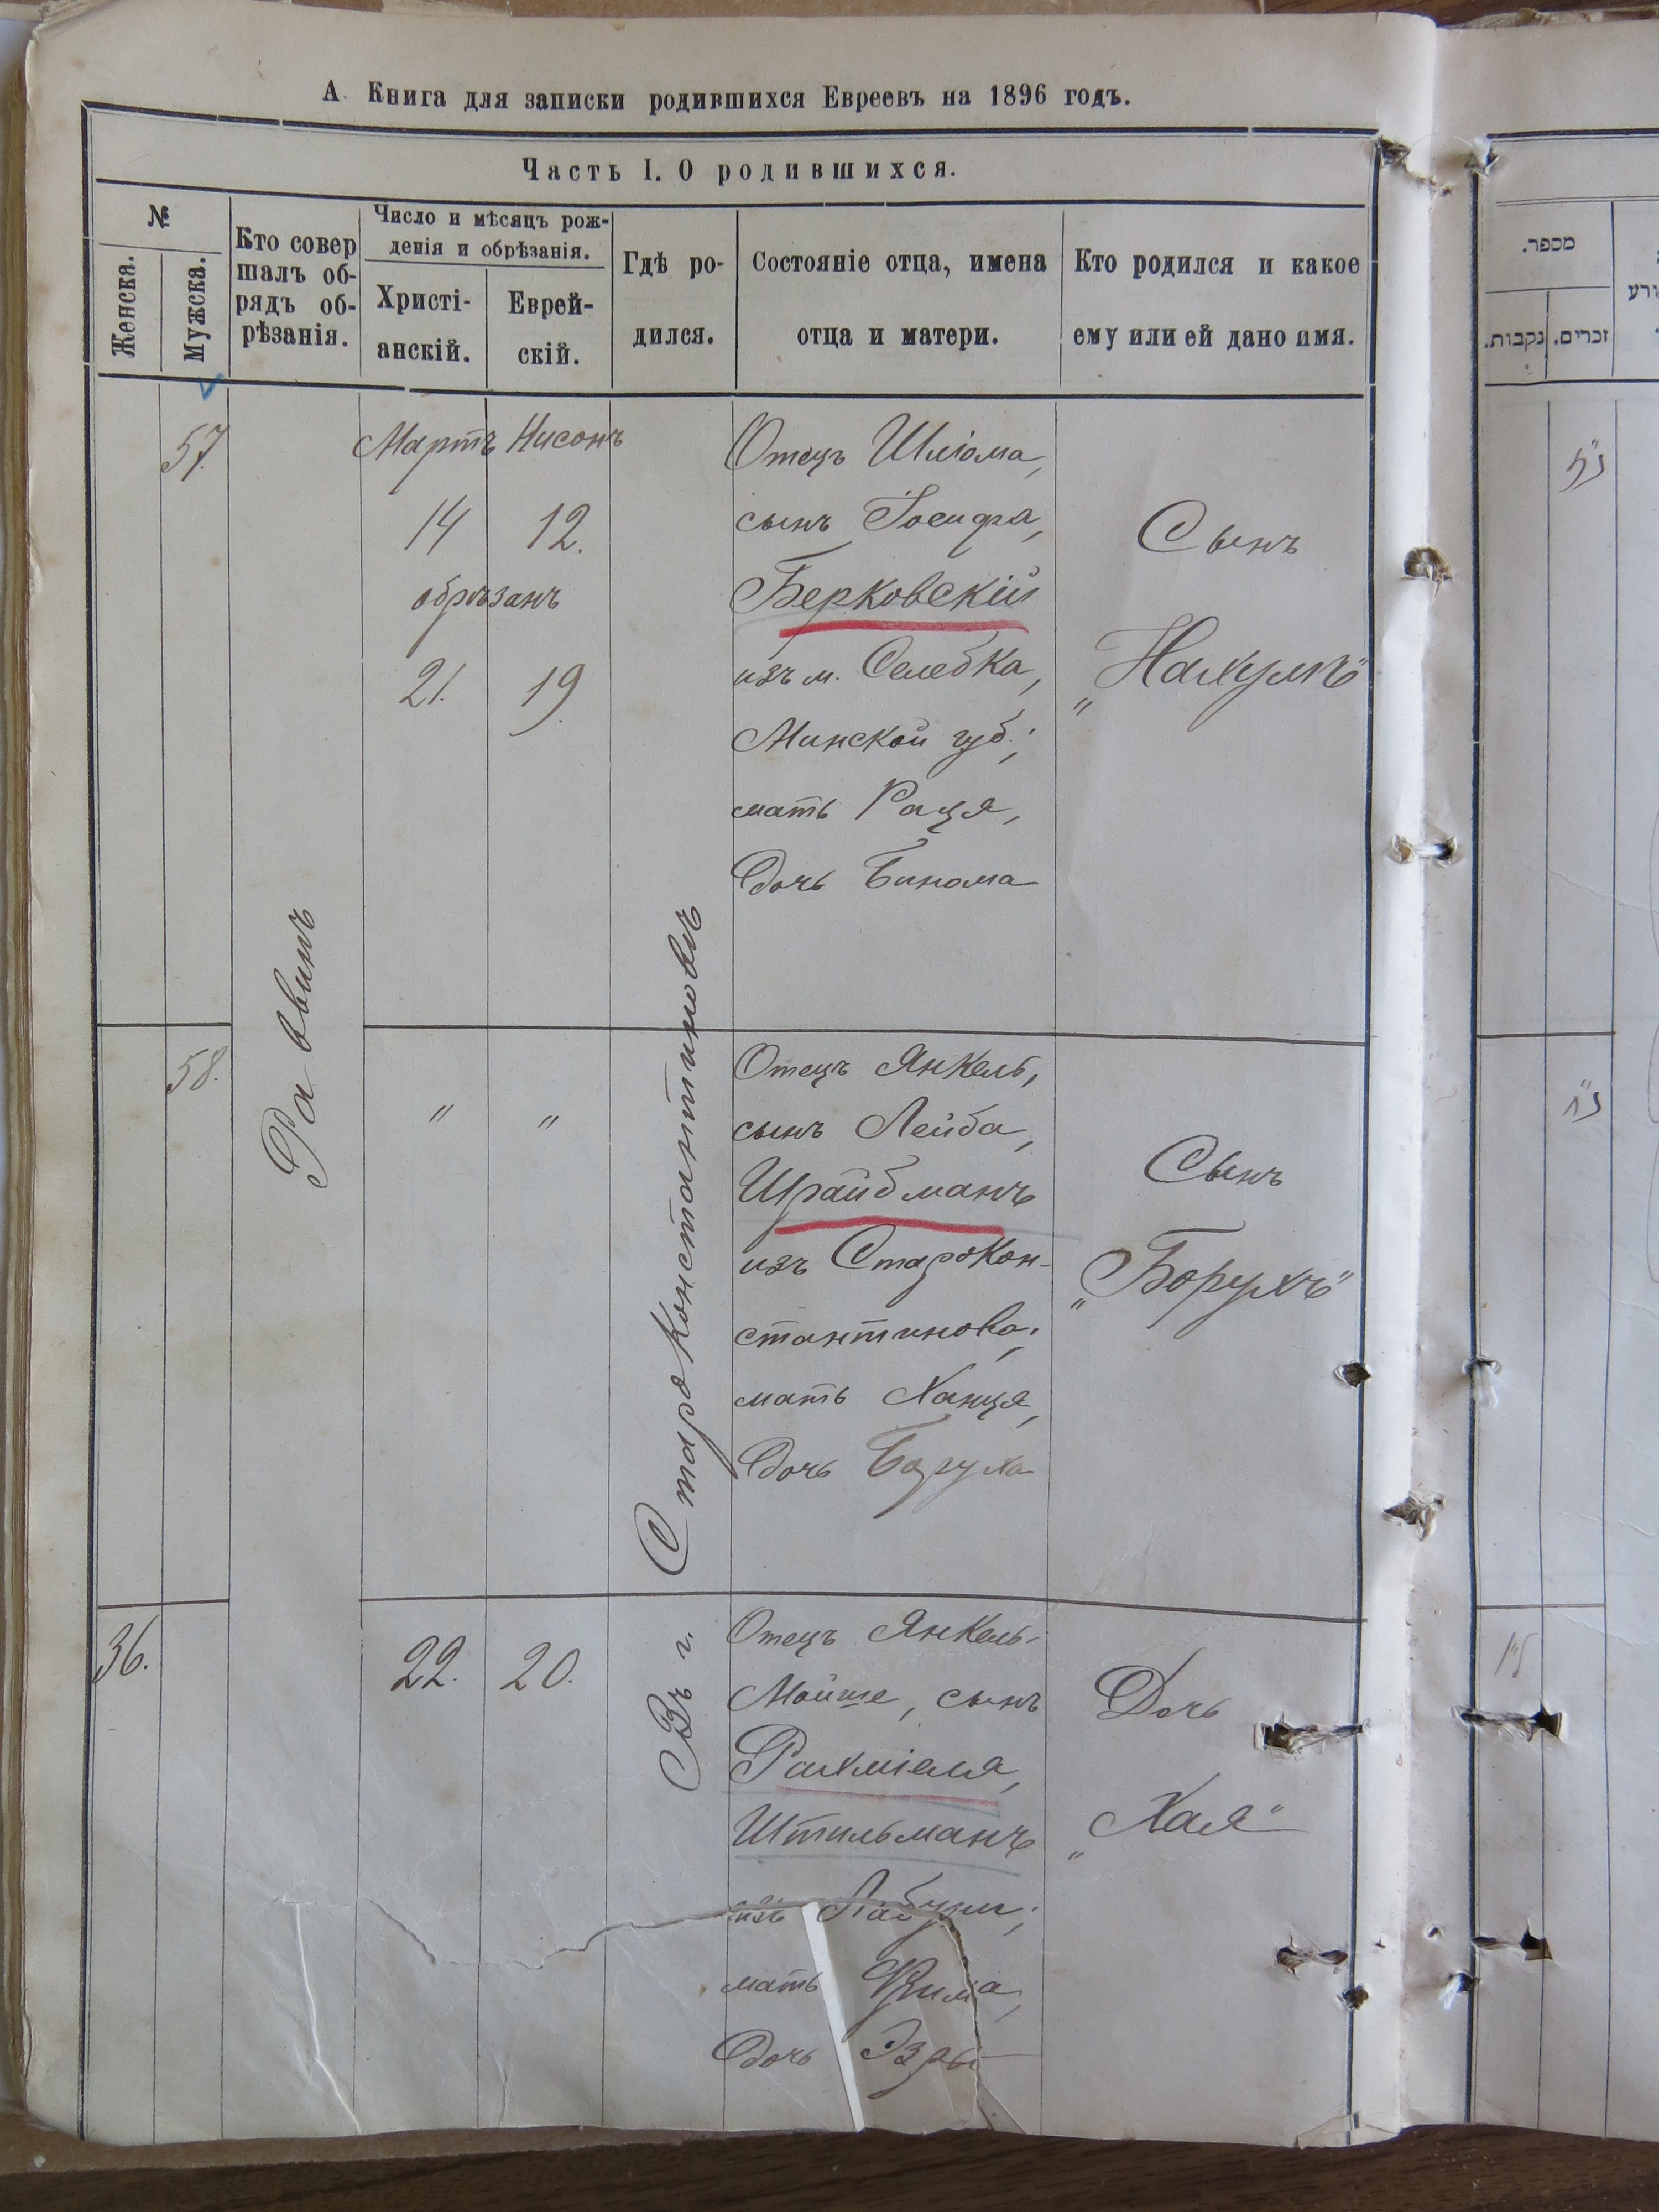 А. Книга для записки родившихся Евреевъ на 1896 годъ.
Часть I. О родившихся.
№
Женска.
Мужска.
Кто совер
шалъ об-
рядъ об-
рѣзанія.
Число и мѣсяцъ рож-
денія и обрѣзанія.
Христі-
анскій.
Еврей-
скій.
Гдѣ ро-
дился.
Состояніе отца, имена
отца и матери.
Кто родился и какое
ему или ей дано имя.
57.
Раввинъ
Мартъ Нисонъ
14 12.
обрѣзанъ
21. 19.
Въ г. Староконстантиновѣ
Отецъ Шліома,
сынъ Іосифа,
Берковскій
изъ м. Селебка,
Минской губ.;
мать Рація,
дочь Бинома
Сынъ
„Нахумъ"
58.
" "
Отецъ Янкель,
сынъ Лейба,
Шрайбманъ
изъ Старокон-
стантинова;
мать Ханця,
дочь Боруха
Сынъ
„Борухъ"
36.
22. 20.
Отецъ Янкель-
Мойше, сынъ
Рахміеля,
Штильманъ
изъ Лабуни;
мать
дочь Эзры
Дочь
„Хая"
מספר.
נקבות.
זכרים.
נ"ז
נ"ח
ל"ו